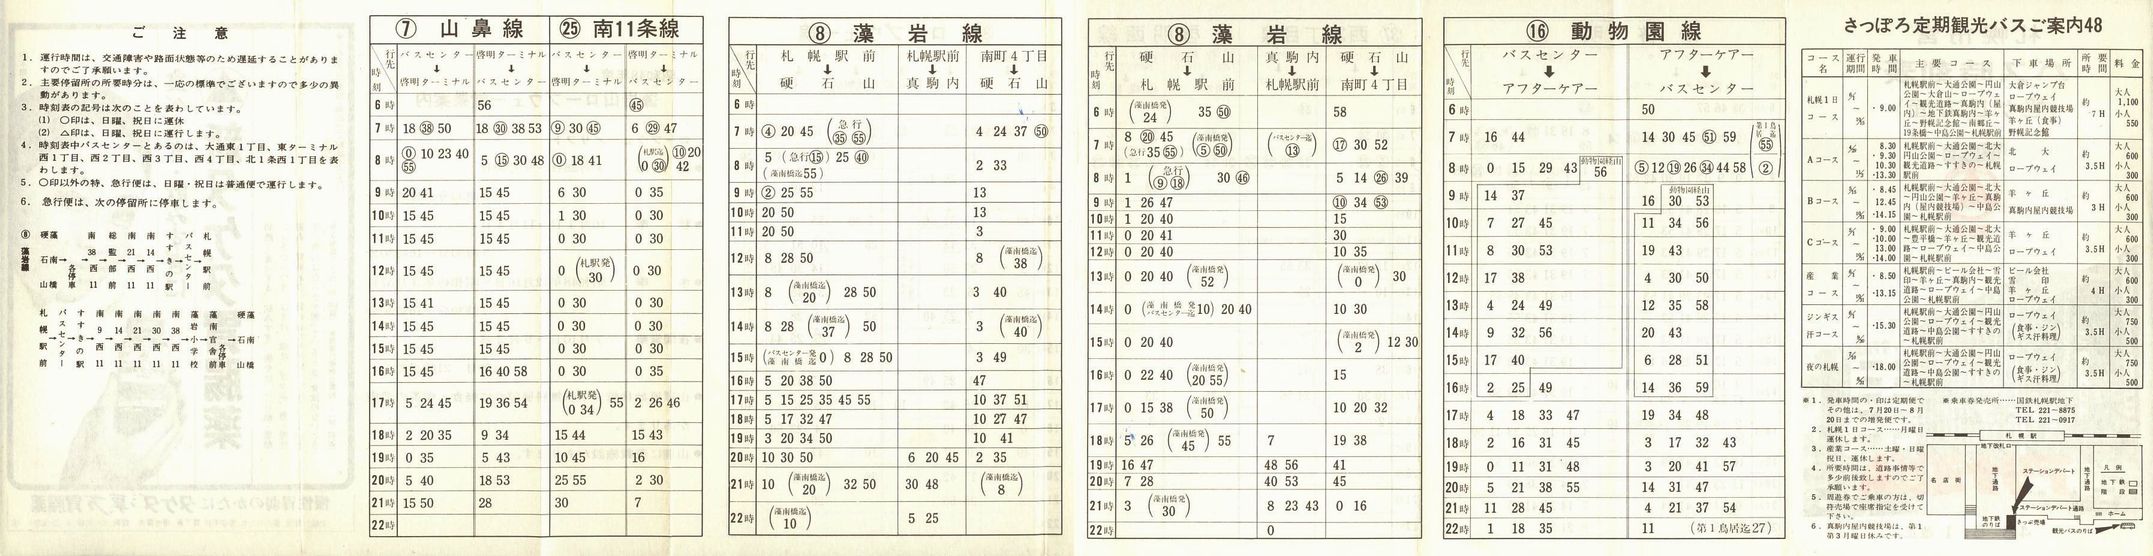 ご注意
1. 運行時間は、交通障害や路面状態等のため遅延することがありま
すのでご了承願います。
2. 主要停留所の所要時分は、一応の標準でございますので多少の異
動があります。
3. 時刻表の記号は次のことを表わしています。
(1) 〇印は、日曜、祝日に運休
(2) △印は、日曜、祝日に運行します。
4. 時刻表中バスセンターとあるのは、大通東1丁目、東ターミナル
西1丁目、西2丁目、西3丁目、西4丁目、北1条西1丁目を表
わします。
5. 〇印以外の特、急行便は、日曜・祝日は普通便で運行します。
6. 急行便は、次の停留所に停車します。
⑧藻岩線
⑦ 山鼻線 ㉕ 南11条線
行先 時刻 バスセンター↓啓明ターミナル 啓明ターミナル↓バスセンター バスセンター↓啓明ターミナル 啓明ターミナル↓バスセンター
6時 56 ㊺
7時 18 ㊳ 50 18 ㉚ 38 53 ⑨ 30 ㊺ 6 ㉙ 47
8時 ⓪ 10 23 40 (55) 5 ⑮ 30 48 ⓪ 18 41 (札駅迄 0 ㉚) ⑩ 20 42
9時 20 41 15 45 6 30 0 35
10時 15 45 15 45 1 30 0 30
11時 15 45 15 45 0 30 0 30
12時 15 45 15 45 0 (札駅発 30) 0 30
13時 15 41 15 45 0 30 0 30
14時 15 45 15 45 0 30 0 30
15時 15 45 15 45 0 30 0 30
16時 15 45 16 40 58 0 30 0 30
17時 5 24 45 19 36 54 (札駅発 0 34) 55 2 26 46
18時 2 20 35 9 34 15 44 15 43
19時 0 35 5 43 10 45 16
20時 5 40 18 53 25 55 2 30
21時 15 50 28 30 7
22時
⑧ 藻岩線
行先 時刻 札幌駅前↓硬石山 札幌駅前↓真駒内 南町4丁目↓硬石山
6時
7時 ④ 20 45 (急行 ㉟ (55)) 4 24 37 ㊿
8時 5 (急行⑮) 25 ㊵ (藻南橋迄55) 2 33
9時 ② 25 55 13
10時 20 50 13
11時 20 50 3
12時 8 28 50 8 (藻南橋迄 38)
13時 8 (藻南橋迄 20) 28 50 3 40
14時 8 28 (藻南橋迄 37) 50 3 (藻南橋迄 40)
15時 (バスセンター発 藻南橋迄 0) 8 28 50 3 49
16時 5 20 38 50 47
17時 5 15 25 35 45 55 10 37 51
18時 5 17 32 47 10 27 47
19時 3 20 34 50 10 41
20時 10 30 50 6 20 45 2 35
21時 10 (藻南橋迄 20) 32 50 30 48 (藻南橋迄 8)
22時 (藻南橋迄 10) 5 25
⑧ 藻岩線
行先 時刻 硬石山↓札幌駅前 真駒内↓札幌駅前 硬石山↓南町4丁目
6時 (藻南橋発 24) 35 ㊿ 58
7時 8 ⑳ 45 (急行35 (55)) (藻南橋発 ⑤ ㊿) (バスセンター迄 ⑬) ⑰ 30 52
8時 1 (急行 ⑨ ⑱) 30 ㊻ 5 14 ㉖ 39
9時 1 26 47 ⑩ 34 (53)
10時 1 20 40 15
11時 0 20 41 30
12時 0 20 40 10 35
13時 0 20 40 (藻南橋発 52) (藻南橋発 0) 30
14時 0 (藻南橋発 バスセンター迄 10) 20 40 10 30
15時 0 20 40 (藻南橋発 2) 12 30
16時 0 22 40 (藻南橋発 20 55) 15
17時 0 15 38 (藻南橋発 50) 10 20 32
18時 5 26 (藻南橋発 45) 55 7 19 38
19時 16 47 48 56 41
20時 7 28 40 53 45
21時 3 (藻南橋発 30) 8 23 43 0 16
22時 0
⑯ 動物園線
行先 時刻 バスセンター↓アフターケアー アフターケアー↓バスセンター
6時 50
7時 16 44 14 30 45 (51) 59 (第1鳥居迄 (55))
8時 0 15 29 43 動物園経由 56 ⑤ 12 ⑲ 26 ㉞ 44 58 (②)
9時 14 37 16 動物園経由 30 53
10時 7 27 45 11 34 56
11時 8 30 53 19 43
12時 17 38 4 30 50
13時 4 24 49 12 35 58
14時 9 32 56 20 43
15時 17 40 6 28 51
16時 2 25 49 14 36 59
17時 4 18 33 47 19 34 48
18時 2 16 31 45 3 17 32 43
19時 0 11 31 48 3 20 41 57
20時 5 21 38 55 14 31 47
21時 11 28 45 4 21 37 54
22時 1 18 35 11 (第1鳥居迄27)
さっぽろ定期観光バスご案内48
コース名 運行期間 発車時間 主要コース 下車場所 所要時間 料金
札幌1日コース ・9.00 札幌駅前〜大通公園〜円山公園〜大倉山〜ロープウェイ〜観光道路〜真駒内(屋内)〜地下鉄真駒内〜羊ヶ丘〜野幌記念館〜南郷丘〜19条橋〜中島公園〜札幌駅前 大倉ジャンプ台 ロープウェイ 真駒内屋内競技場 羊ヶ丘(食事) 野幌記念館 約7H 大人1,100 小人550
Aコース 8.30 ・9.30 ・10.30 ・13.30 札幌駅前〜大通公園〜北大 円山公園〜ロープウェイ〜観光道路〜すすきの〜札幌駅前 北大 ロープウェイ 約3H 大人600 小人300
Bコース ・8.45 12.45 ・14.15 札幌駅前〜大通公園〜北大〜円山公園〜羊ヶ丘〜真駒内(屋内競技場)〜中島公園〜札幌駅前 羊ヶ丘 真駒内屋内競技場 約3H 大人600 小人300
Cコース ・9.00 ・10.00 13.00 ・14.00 札幌駅前〜大通公園〜北大〜豊平橋〜羊ヶ丘〜観光道路〜ロープウェイ〜中島公園〜札幌駅前 羊ヶ丘 ロープウェイ 約3.5H 大人600 小人300
産業コース ・8.50 ・13.15 札幌駅前〜ビール会社〜雪印〜羊ヶ丘〜真駒内〜観光道路〜ロープウェイ〜中島公園〜札幌駅前 ビール会社 雪印 羊ヶ丘 ロープウェイ 約4H 大人600 小人300
ジンギス汗コース ・15.30 札幌駅前〜大通公園〜円山公園〜ロープウェイ〜観光道路〜中島公園〜すすきの〜札幌駅前 ロープウェイ (食事・ジンギス汗料理) 約3.5H 大人750 小人500
夜の札幌 ・18.00 札幌駅前〜大通公園〜円山公園〜ロープウェイ〜観光道路〜中島公園〜すすきの〜札幌駅前 ロープウェイ (食事・ジンギス汗料理) 約3.5H 大人750 小人500
※1. 発車時間の・印は定期便で
その他は、7月20日〜8月
20日までの増発便です。
2. 札幌1日コース……月曜日
運休します。
3. 産業コース……土曜・日曜
祝日、運休します。
4. 所要時間は、道路事情等で
多少前後致しますのでご了
承願います。
5. 周遊券でご乗車の方は、切
符売場で座席指定を受けて
下さい。
6. 真駒内屋内競技場は、第1
第3月曜日休みです。
※乗車券発売所……国鉄札幌駅地下
TEL 221−8875
TEL 221−0917
札幌駅
地下改札口
名店街
地下通路
ステーションデパート
地下通路
凡例
地下鉄
階段
ホーム
ステーションデパート通路
地下鉄のりば
きっぷ売場
観光バスのりば